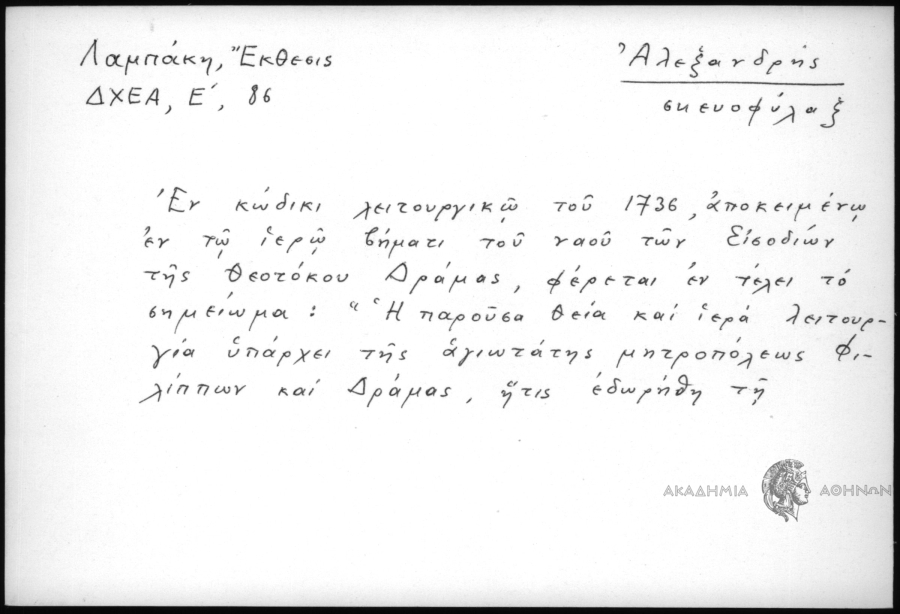 Λαμπάκη, Ἔκθεσις
ΔΧΕΑ, Ε΄, 86
Ἀλεξανδρής
σκευοφύλαξ
Ἐν κώδικι λειτουργικῷ τοῦ 1736, ἀποκειμένῳ
ἐν τῷ ἱερῷ βήματι τοῦ ναοῦ τῶν Εἰσοδίων
τῆς Θεοτόκου Δράμας, φέρεται ἐν τέλει τὸ
σημείωμα: "Ἡ παροῦσα θεία καί ἱερά λειτουρ-
γία ὑπάρχει τῆς ἁγιωτάτης μητροπόλεως Φι-
λίππων καί Δράμας, ἥτις ἐδωρήθη τῇ
ΑΚΑΔΗΜΙΑ ΑΘΗΝΩΝ